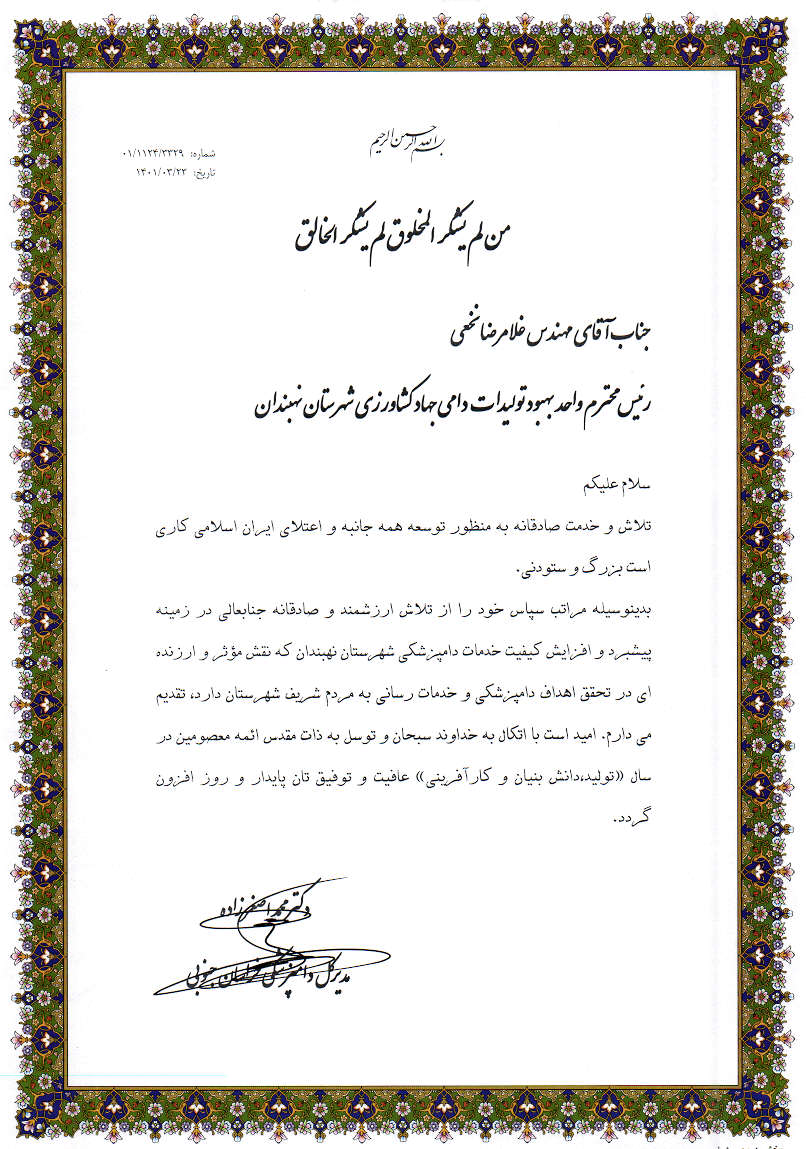 بسم الله الرحمن الرحیم
شماره: ۰۱/۱۱۲۴/۳۳۲۹
تاریخ: ۱۴۰۱/۰۳/۲۳
من لم یشکر المخلوق لم یشکر الخالق
جناب آقای مهندس غلامرضا نخعی
رئیس محترم واحد بهبود تولیدات دامی جهاد کشاورزی شهرستان نهبندان
سلام علیکم
تلاش و خدمت صادقانه به منظور توسعه همه جانبه و اعتلای ایران اسلامی کاری
است بزرگ و ستودنی.
بدینوسیله مراتب سپاس خود را از تلاش ارزشمند و صادقانه جنابعالی در زمینه
پیشبرد و افزایش کیفیت خدمات دامپزشکی شهرستان نهبندان که نقش مؤثر و ارزنده
ای در تحقق اهداف دامپزشکی و خدمات رسانی به مردم شریف شهرستان دارد، تقدیم
می دارم. امید است با اتکال به خداوند سبحان و توسل به ذات مقدس ائمه معصومین در
سال «تولید،دانش بنیان و کارآفرینی» عافیت و توفیق تان پایدار و روز افزون
گردد.
دکتر محمد اصغرزاده
مدیرکل دامپزشکی خراسان جنوبی